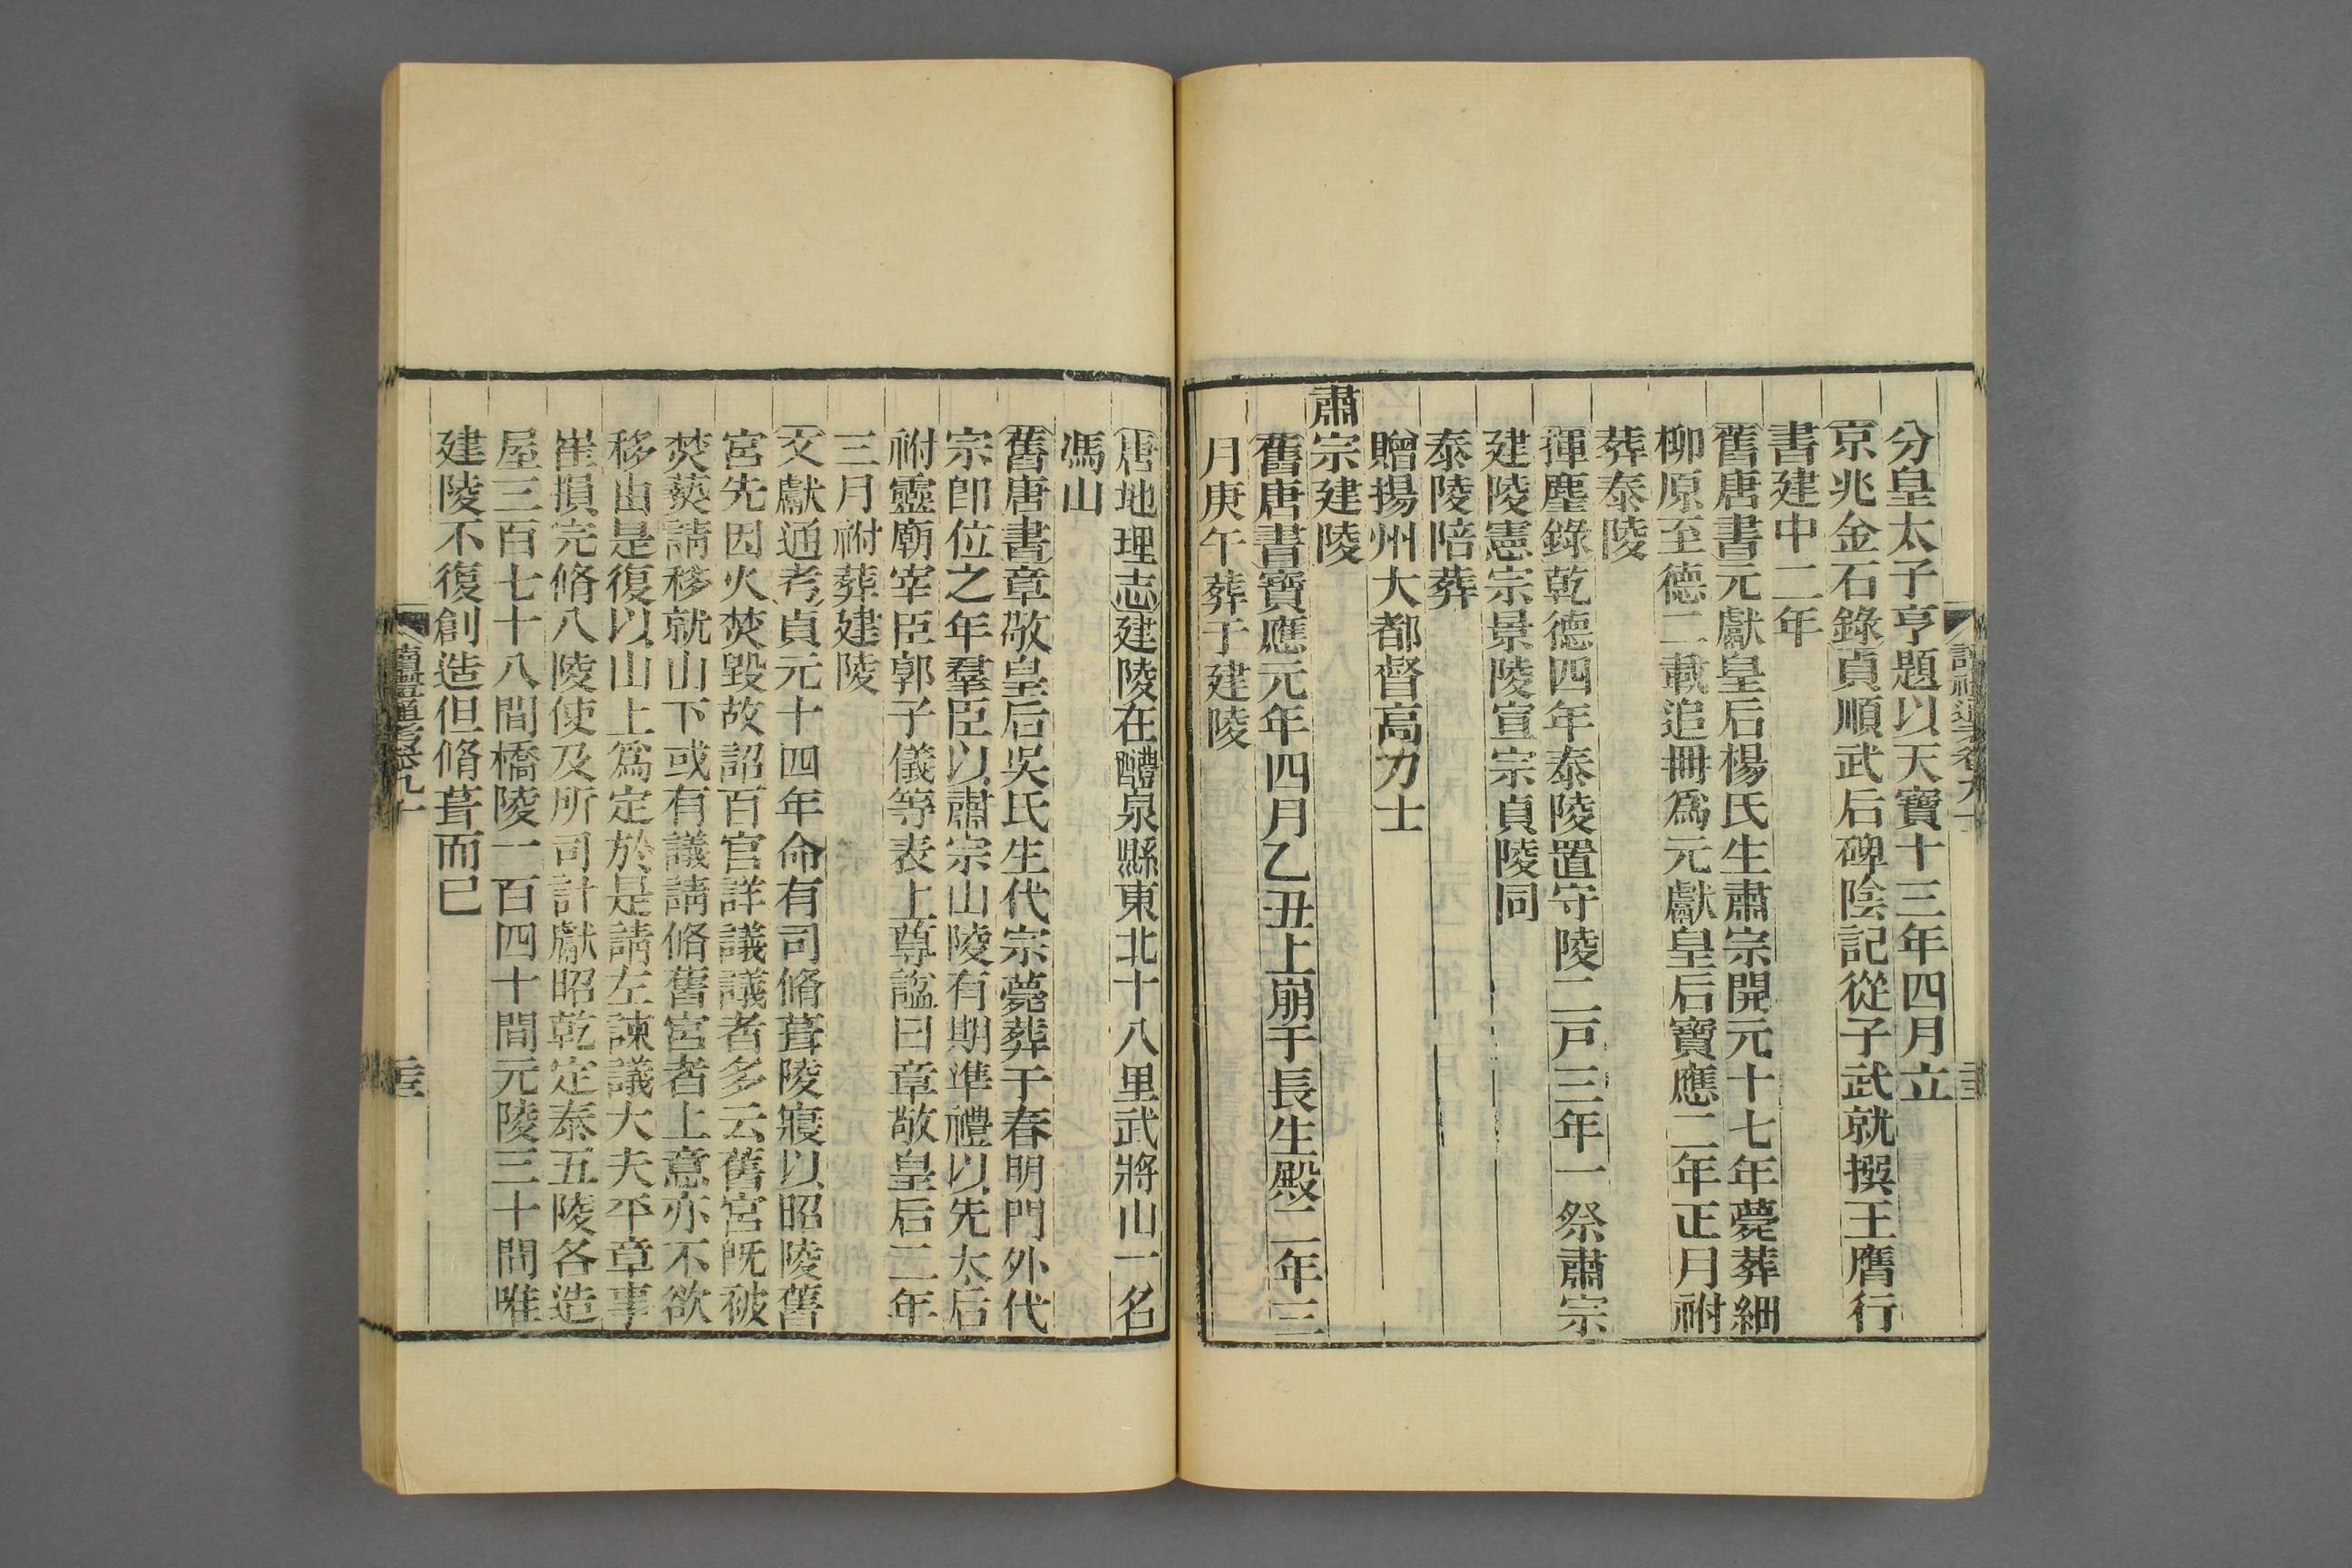 分皇太子亨題以天寶十三年四月立
京兆金石錄貞順武后碑陰記從子武就撰王膺行
書建中二年
舊唐書元獻皇后楊氏生肅宗開元十七年薨葬細
柳原至德二載追冊爲元獻皇后寶應二年正月祔
葬泰陵
揮麈錄乾德四年泰陵置守陵二戸三年一祭肅宗
建陵憲宗景陵宣宗貞陵同
泰陵陪葬
贈揚州大都督高力士
肅宗建陵
舊唐書寶應元年四月乙丑上崩于長生殿二年三
月庚午葬于建陵
唐地理志建陵在醴泉縣東北十八里武將山一名
馮山
舊唐書章敬皇后吳氏生代宗薨葬于春明門外代
宗卽位之年羣臣以肅宗山陵有期準禮以先太后
祔靈廟宰臣郭子儀等表上尊諡曰章敬皇后二年
三月祔葬建陵
文獻通考貞元十四年命有司脩葺陵寢以昭陵舊
宮先因火焚毀故詔百官詳議議者多云舊宮旣被
焚爇請移就山下或有議請脩舊宮者上意亦不欲
移由是復以山上爲定於是請左諫議大夫平章事
崔損完脩八陵使及所司計獻昭乾定泰五陵各造
屋三百七十八間橋陵一百四十間元陵三十間唯
建陵不復創造但脩葺而已
讀禮通考卷九十